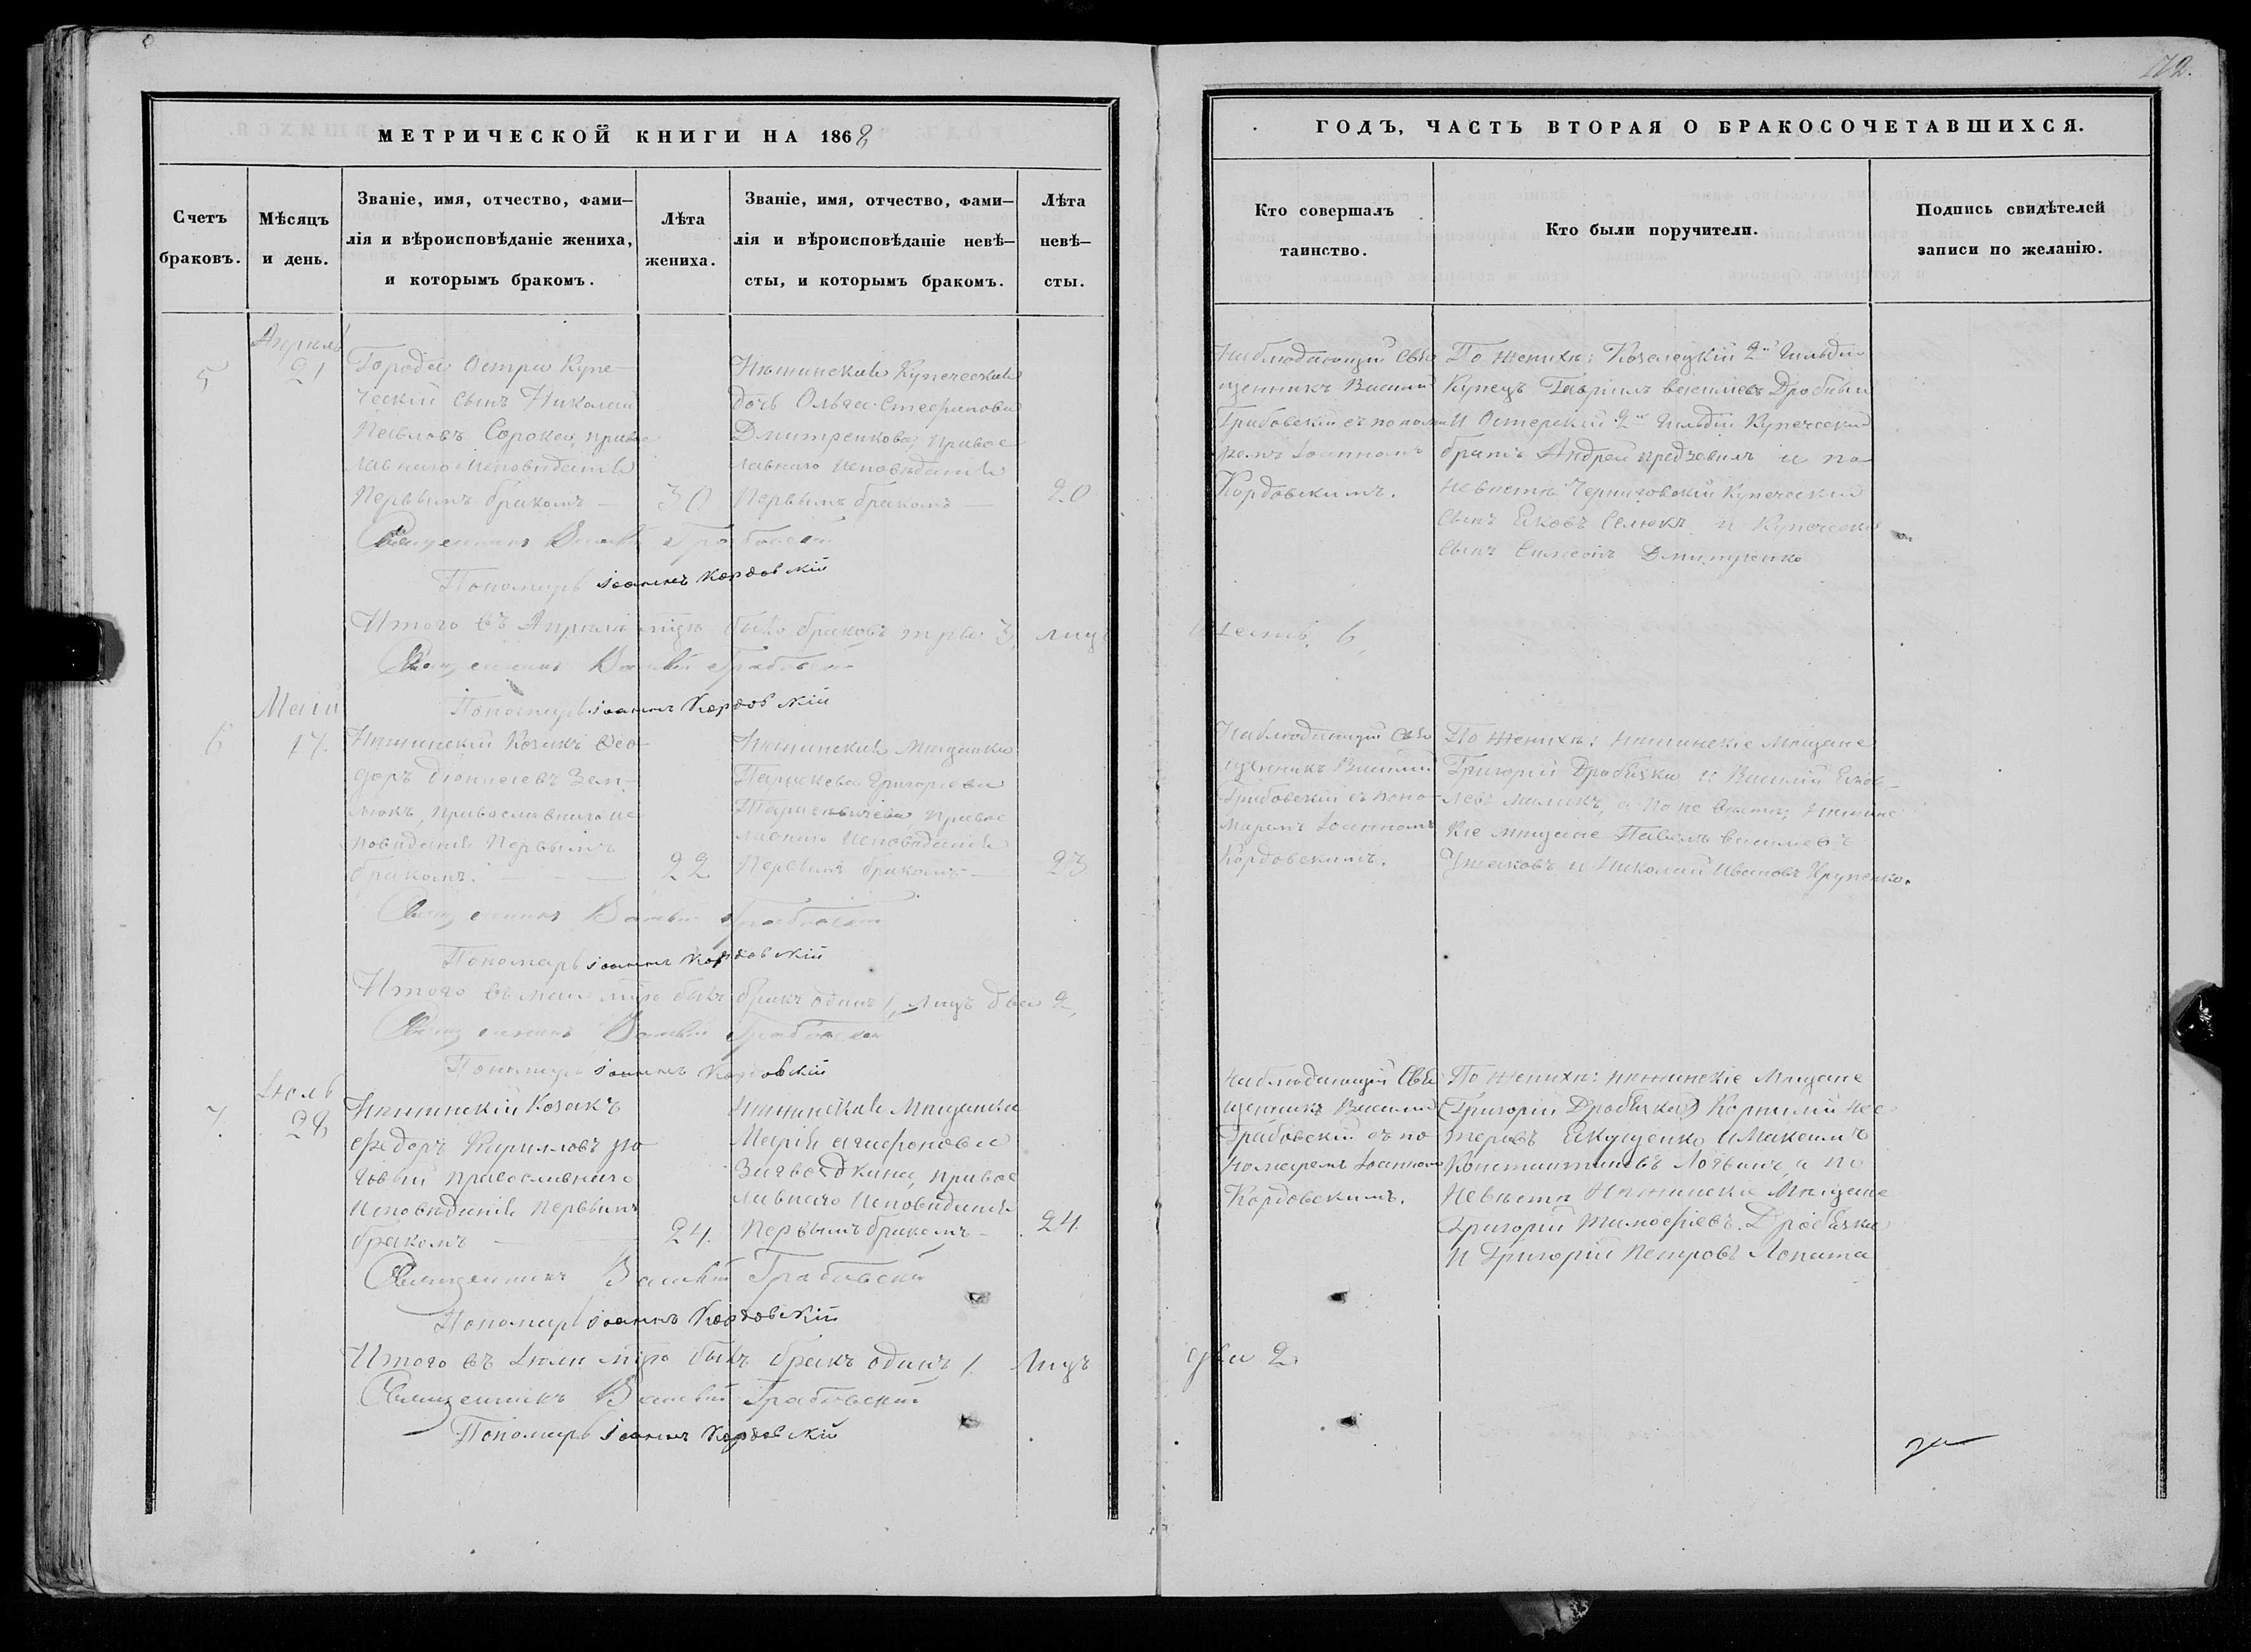 172.
МЕТРИЧЕСКОЙ КНИГИ НА 1868
ГОДЪ, ЧАСТЬ ВТОРАЯ О БРАКОСОЧЕТАВШИХСЯ.
Счетъ
браковъ.
Мѣсяцъ
и день.
Званіе, имя, отчество, фами-
лія и вѣроисповѣданіе жениха,
и которымъ бракомъ.
Лѣта
жениха.
Званіе, имя, отчество, фами-
лія и вѣроисповѣданіе невѣ-
сты, и которымъ бракомъ.
Лѣта
невѣ-
сты.
Кто совершалъ
таинство.
Кто были поручители.
Подпись свидѣтелей
записи по желанію.
5
Апрѣль
21
Города Остра Купе-
ческій сынъ Николай
Павловъ Сорока, право
славнаго исповѣданія
Первымъ бракомъ
30
Нѣжинская Купеческая
дочь Ольга Стефанова
Дмитренкова, правос
лавнаго исповѣданія
Первымъ бракомъ
20
Наблюдающій Свя
щенникъ Василій
Грабовскій съ понома
ремъ Іоанномъ
Кордовскимъ.
По женихѣ: Козелецкій 2й Гильдіи
Купецъ Гавріилъ Васильевъ Дробный
и Остерскій 2й Гильдіи Купеческій
братъ Андрей и по
невѣстѣ Черниговскій Купеческій
сынъ Яковъ Селюкъ и Купеческій
сынъ Симеонъ Дмитренко
Священникъ Василій Грабовскій
Пономарь Іоаннъ Кордовскій
Итого въ Апрѣлѣ мцѣ было браковъ три 3, лицъ шесть 6,
Священникъ Василій Грабовскій
Пономарь Іоаннъ Кордовскій
6
Май
17.
Нѣжинскій Козакъ Ѳео-
доръ Діонисіевъ Зем-
люкъ, православнаго ис
повѣданія Первымъ
бракомъ.
22
Нѣжинская Мѣщанка
Параскева Григорьева
правос
лавнаго исповѣданія
Первымъ бракомъ
23
Наблюдающій Свя
щенникъ Василій
Грабовскій съ поно-
маремъ Іоанномъ
Кордовскимъ.
По женихѣ: нѣжинскіе Мѣщане
Григорій Дробязка и Василій Яков-
левъ а по невѣстѣ; нѣжинс
кіе мѣщане Павелъ Васильевъ
Ушаковъ и Николай Ивановъ
Священникъ Василій Грабовскій
Пономарь Іоаннъ Кордовскій
Итого въ маѣ мцѣ былъ бракъ одинъ 1, лицъ два 2,
Священникъ Василій Грабовскій
Пономарь Іоаннъ Кордовскій
7.
Іюль
28
Нѣжинскій Козакъ
Федоръ Кирилловъ
православнаго
исповѣданія первымъ
бракомъ
24.
Нѣжинская Мѣщанка
Марія Агафонова
правос
лавнаго исповѣданія
Первымъ бракомъ
24.
Наблюдающій Свя
щенникъ Василій
Грабовскій съ по-
номаремъ Іоанномъ
Кордовскимъ.
По женихѣ: нѣжинскіе Мѣщане
(Григорій Дробязка) Корнилій Нес
теровъ Якущенко и Максимъ
Константиновъ а по
невѣстѣ Нѣжинскіе Мѣщане
Григорій Тимофіевъ Дробязка
и Григорій Петровъ Лопата
Священникъ Василій Грабовскій
Пономарь Іоаннъ Кордовскій
Итого въ Іюлѣ мцѣ былъ бракъ одинъ 1. лицъ два 2.
Священникъ Василій Грабовскій
Пономарь Іоаннъ Кордовскій